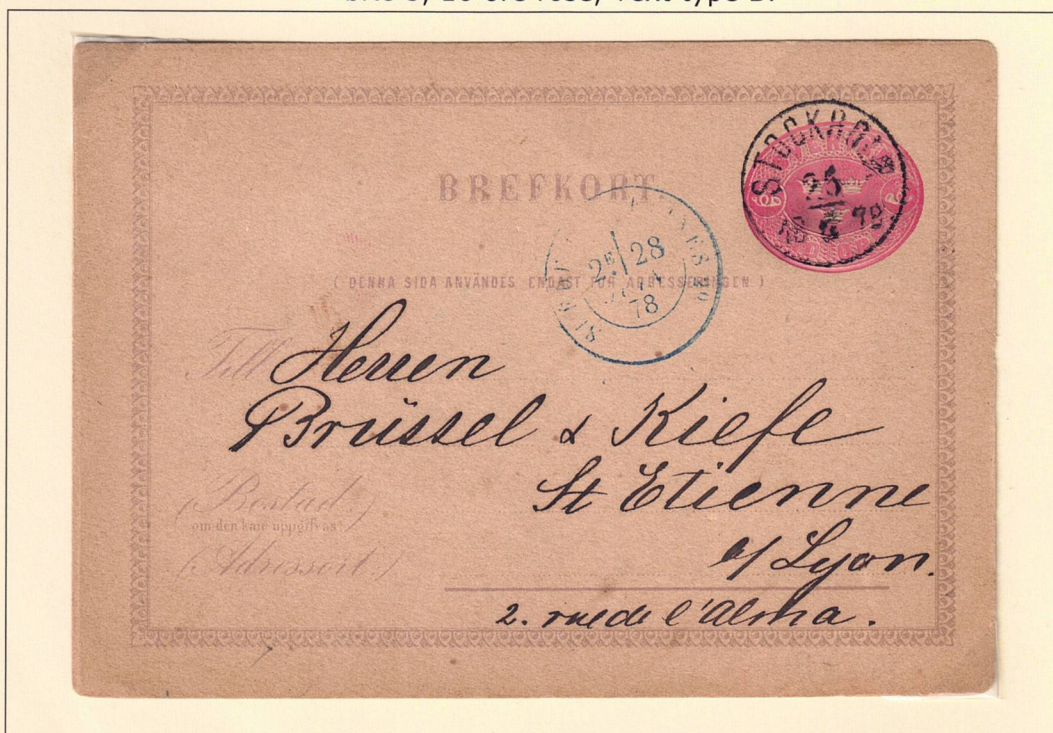 BREFKORT.
STOCKHOLM
25
78
( DENNA SIDA ANVÄNDES ENDAST FÖR ADRESSERINGEN )
2E 28
78
Till Herren
Brüssel & Kiefe
St Etienne
(Bostad.)
om den kan uppgifvas:
a/ Lyon.
(Adressort.)
2. rue de l'Alma.